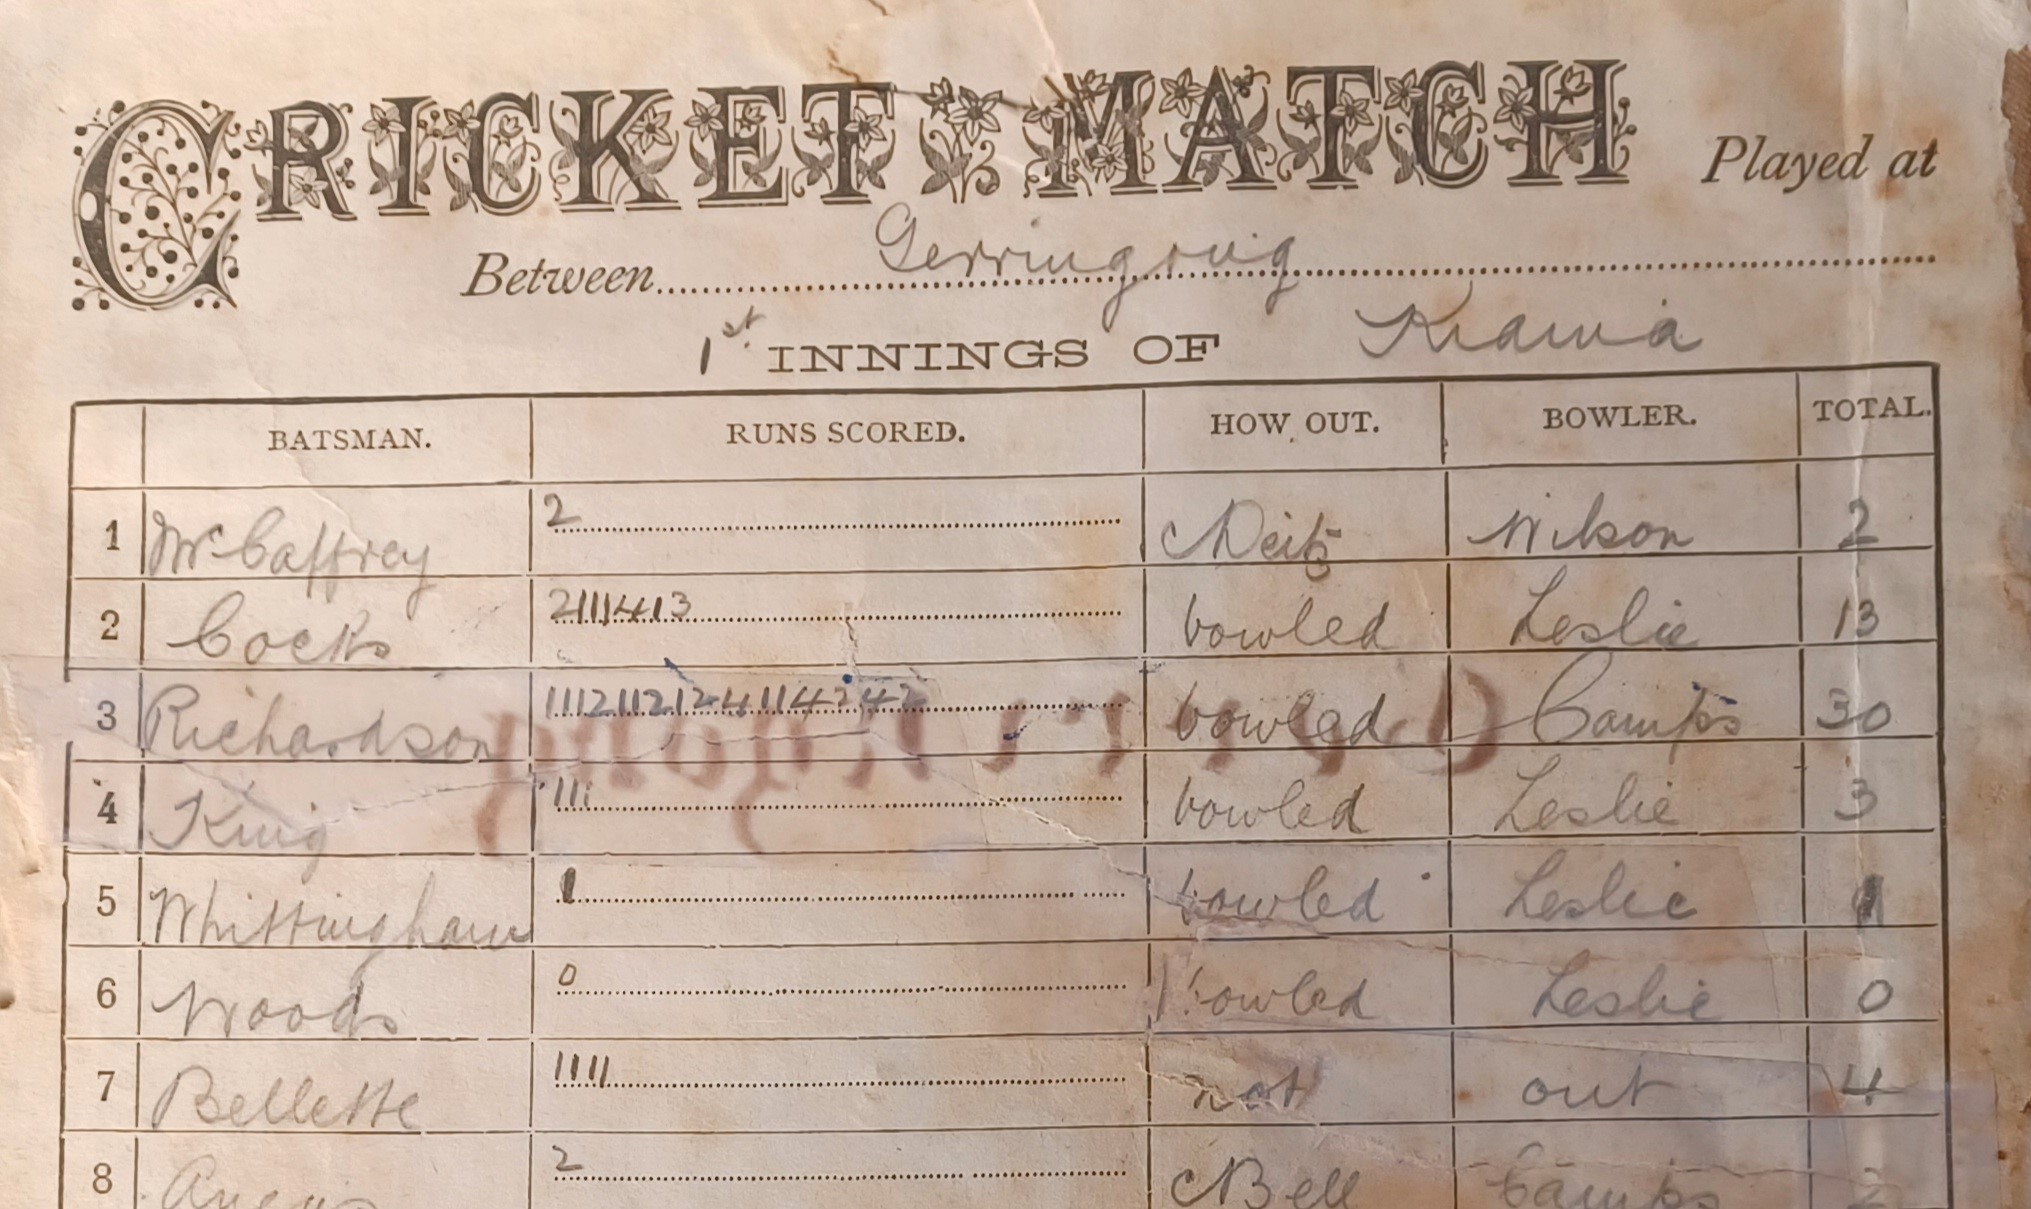 CRICKET MATCH Played at
Between Gerringong
1st INNINGS OF Kiama
BATSMAN. RUNS SCORED. HOW OUT. BOWLER. TOTAL.
1 McCaffrey 2 c Neitz Wilson 2
2 Cocks 2111413 bowled Leslie 13
3 Richardson 1112112124114242 bowled Camps 30
4 King 111 bowled Leslie 3
5 Whittingham 1 bowled Leslie 1
6 Woods 0 bowled Leslie 0
7 Bellette 1111 not out 4
8 2 c Bell Camps 2